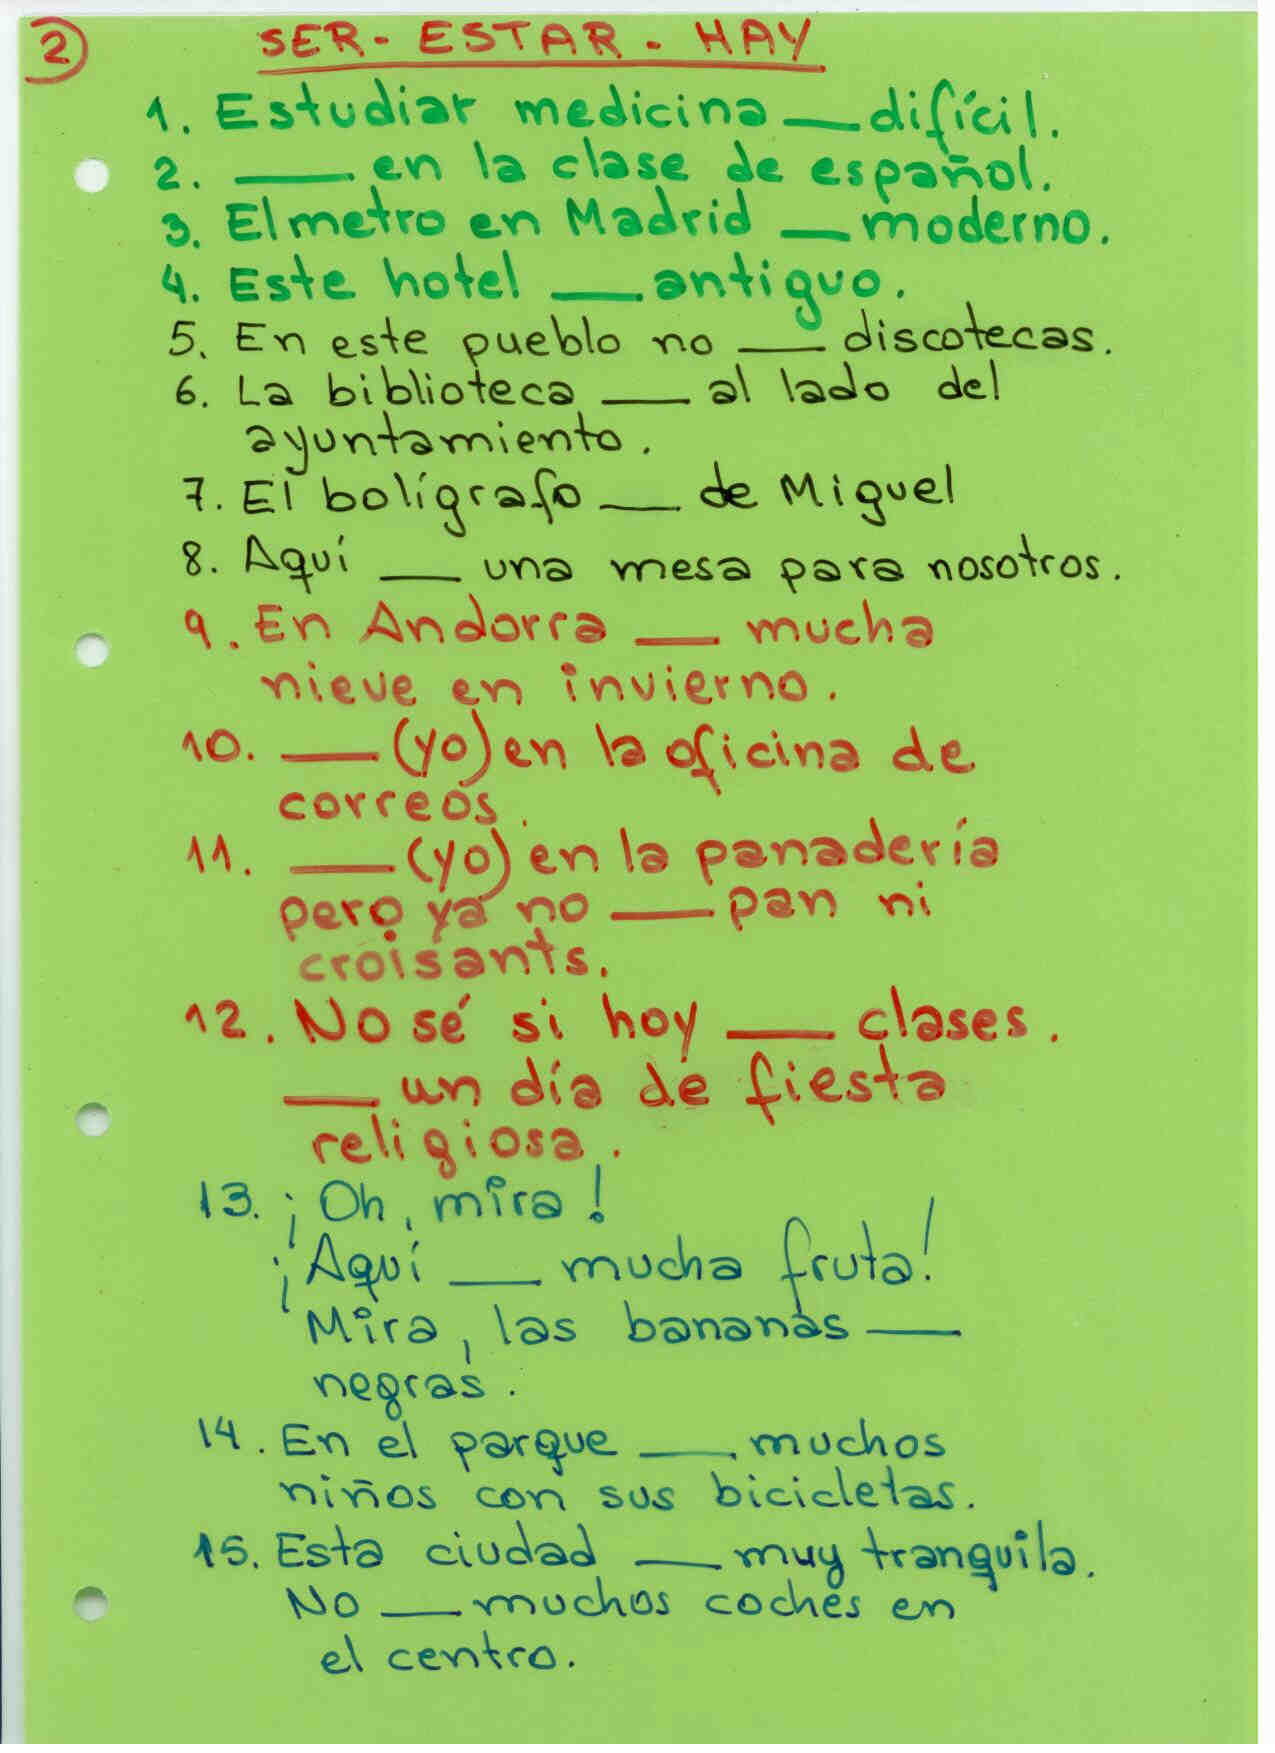 2 SER - ESTAR - HAY
1. Estudiar medicina ___ difícil.
2. ___ en la clase de español.
3. El metro en Madrid ___ moderno.
4. Este hotel ___ antiguo.
5. En este pueblo no ___ discotecas.
6. La biblioteca ___ al lado del
ayuntamiento.
7. El bolígrafo ___ de Miguel
8. Aquí ___ una mesa para nosotros.
9. En Andorra ___ mucha
nieve en invierno.
10. ___ (yo) en la oficina de
correos.
11. ___ (yo) en la panadería
pero ya no ___ pan ni
croisants.
12. No sé si hoy ___ clases.
___ un día de fiesta
religiosa.
13. ¡Oh, mira!
¡Aquí ___ mucha fruta!
Mira, las bananas ___
negras.
14. En el parque ___ muchos
niños con sus bicicletas.
15. Esta ciudad ___ muy tranquila.
No ___ muchos coches en
el centro.